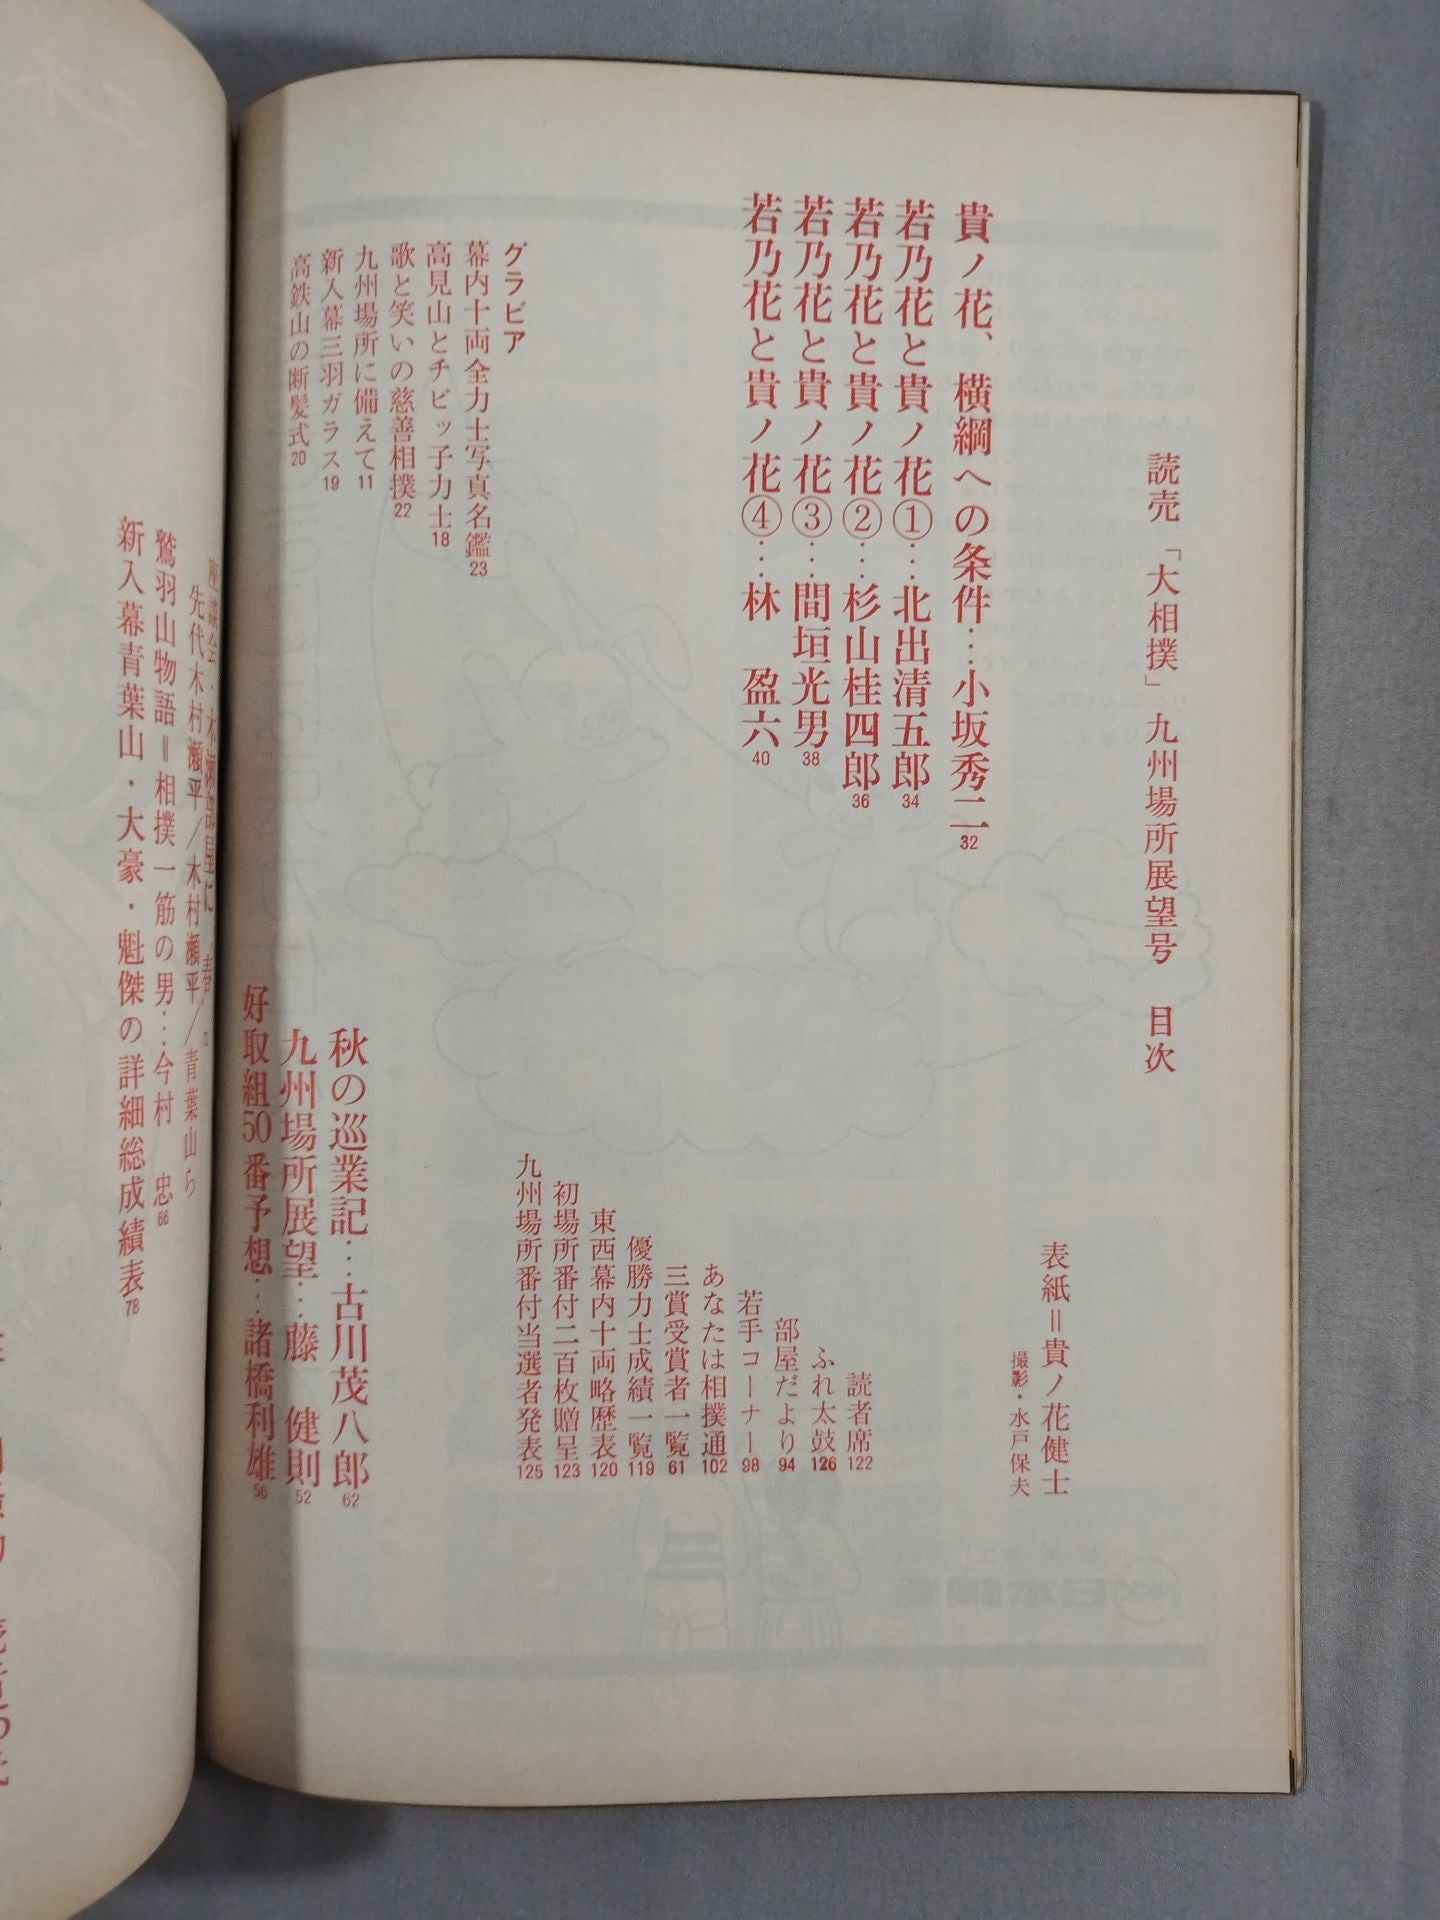 読売「大相撲」九州場所展望号　目次
表紙＝貴ノ花健士
撮影・水戸保夫
貴ノ花、横綱への条件…小坂秀二32
若乃花と貴ノ花①…北出清五郎34
若乃花と貴ノ花②…杉山桂四郎36
若乃花と貴ノ花③…間垣光男38
若乃花と貴ノ花④…林　盈六40
読者席122
ふれ太鼓126
部屋だより94
若手コーナー98
あなたは相撲通102
三賞受賞者一覧61
優勝力士成績一覧119
東西幕内十両略歴表120
初場所番付二百枚贈呈123
九州場所番付当選者発表125
グラビア
幕内十両全力士写真名鑑23
高見山とチビッ子力士18
歌と笑いの慈善相撲22
九州場所に備えて11
新入幕三羽ガラス19
高鉄山の断髪式20
秋の巡業記…古川茂八郎62
九州場所展望…藤　健則52
好取組50番予想…諸橋利雄56
先代木村瀬平／木村瀬平／青葉山ら
鷲羽山物語＝相撲一筋の男…今村　忠66
新入幕青葉山・大豪・魁傑の詳細総成績表78